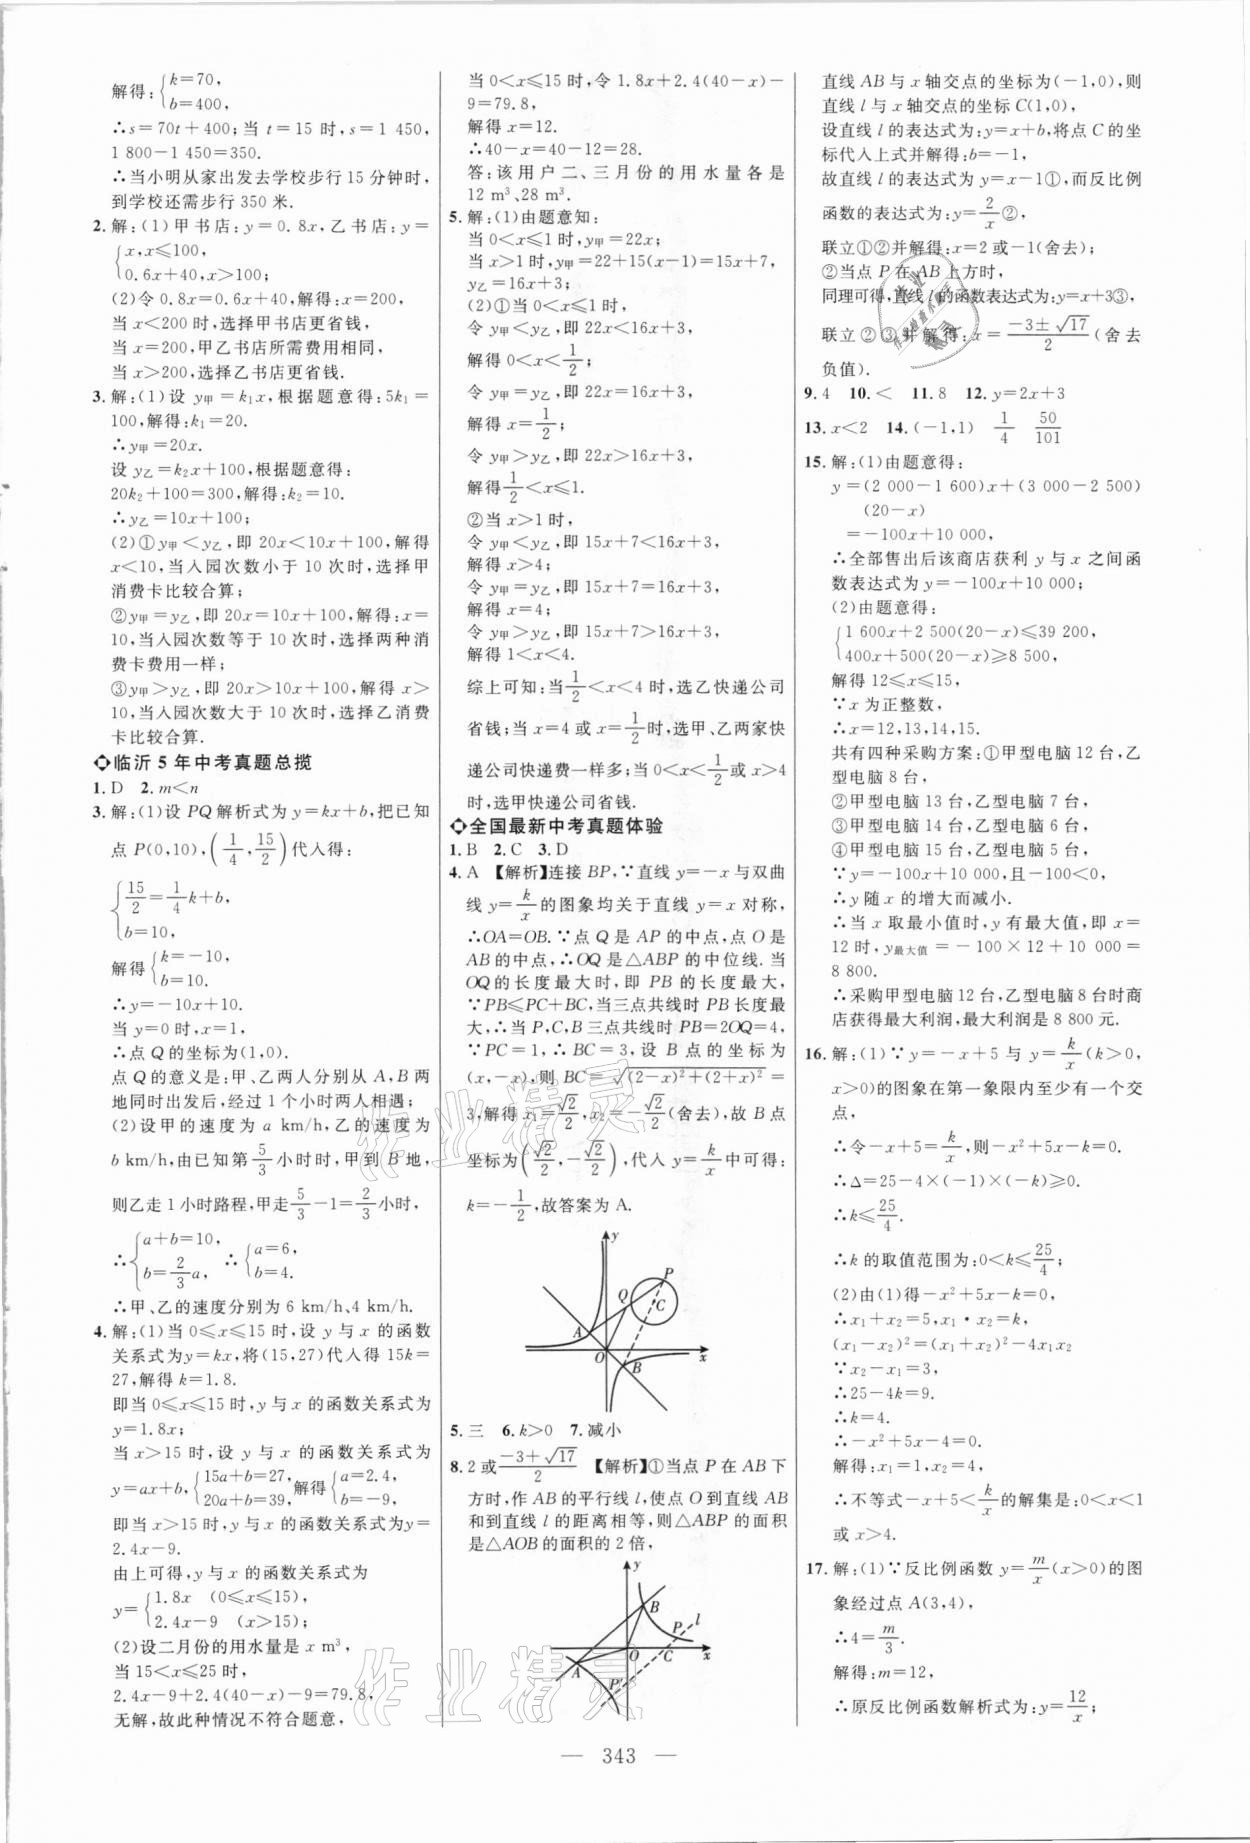 解得:{k=70,
b=400,
∴s=70t+400;当 t=15 时,s=1 450,
1 800-1 450=350.
∴当小明从家出发去学校步行 15 分钟时,
到学校还需步行 350 米.
2.解:(1)甲书店:y=0.8x,乙书店:y=
{x,x≤100,
0.6x+40,x>100;
(2)令 0.8x=0.6x+40,解得:x=200,
当 x<200 时,选择甲书店更省钱,
当 x=200,甲乙书店所需费用相同,
当 x>200,选择乙书店更省钱.
3.解:(1)设 y甲=k₁x,根据题意得:5k₁=
100,解得:k₁=20.
∴y甲=20x.
设 y乙=k₂x+100,根据题意得:
20k₂+100=300,解得:k₂=10.
∴y乙=10x+100;
(2)①y甲<y乙,即 20x<10x+100,解得
x<10,当入园次数小于 10 次时,选择甲
消费卡比较合算;
②y甲=y乙,即 20x=10x+100,解得:x=
10,当入园次数等于 10 次时,选择两种消
费卡费用一样;
③y甲>y乙,即 20x>10x+100,解得 x>
10,当入园次数大于 10 次时,选择乙消费
卡比较合算.
临沂 5 年中考真题总揽
1.D 2.m<n
3.解:(1)设 PQ 解析式为 y=kx+b,把已知
点 P(0,10),(1/4,15/2)代入得:
{15/2=1/4k+b,
b=10,
解得{k=-10,
b=10.
∴y=-10x+10.
当 y=0 时,x=1,
∴点 Q 的坐标为(1,0).
点 Q 的意义是:甲、乙两人分别从 A,B 两
地同时出发后,经过 1 个小时两人相遇;
(2)设甲的速度为 a km/h,乙的速度为
b km/h,由已知第5/3小时时,甲到 B 地,
则乙走 1 小时路程,甲走5/3-1=2/3小时,
∴{a+b=10,
b=2/3a, ∴{a=6,
b=4.
∴甲、乙的速度分别为 6 km/h、4 km/h.
4.解:(1)当 0≤x≤15 时,设 y 与 x 的函数
关系式为y=kx,将(15,27)代入得 15k=
27,解得 k=1.8.
即当 0≤x≤15 时,y 与 x 的函数关系式为
y=1.8x;
当 x>15 时,设 y 与 x 的函数关系式为
y=ax+b,{15a+b=27,
20a+b=39,解得{a=2.4,
b=-9,
即当 x>15时,y 与 x 的函数关系式为y=
2.4x-9.
由上可得,y 与 x 的函数关系式为
y={1.8x (0≤x≤15)
2.4x-9 (x>15);
(2)设二月份的用水量是 x m³,
当 15<x≤25 时,
2.4x-9+2.4(40-x)-9=79.8,
无解,故此种情况不符合题意,
当 0<x≤15 时,令 1.8x+2.4(40-x)-
9=79.8,
解得 x=12.
∴40-x=40-12=28.
答:该用户二、三月份的用水量各是
12 m³、28 m³.
5.解:(1)由题意知:
当 0<x≤1 时,y甲=22x;
当 x>1 时,y甲=22+15(x-1)=15x+7,
y乙=16x+3;
(2)①当 0<x≤1 时,
令 y甲<y乙,即 22x<16x+3,
解得 0<x<1/2;
令 y甲=y乙,即 22x=16x+3,
解得 x=1/2;
令 y甲>y乙,即 22x>16x+3,
解得1/2<x≤1.
②当 x>1 时,
令 y甲<y乙,即 15x+7<16x+3,
解得 x>4;
令 y甲=y乙,即 15x+7=16x+3,
解得 x=4;
令 y甲>y乙,即 15x+7>16x+3,
解得 1<x<4.
综上可知:当1/2<x<4 时,选乙快递公司
省钱;当 x=4 或 x=1/2时,选甲、乙两家快
递公司快递费一样多;当 0<x<1/2或 x>4
时,选甲快递公司省钱.
全国最新中考真题体验
1.B 2.C 3.D
4.A 【解析】连接 BP,∵直线 y=-x 与双曲
线 y=k/x的图象均关于直线 y=x 对称,
∴OA=OB.∵点 Q 是 AP 的中点,点 O 是
AB 的中点,∴OQ 是△ABP 的中位线.当
OQ 的长度最大时,即 PB 的长度最大,
∵PB≤PC+BC,当三点共线时 PB 长度最
大,∴当 P,C,B 三点共线时 PB=2OQ=4,
∵PC=1,∴BC=3,设 B 点的坐标为
(x,-x),则 BC=√((2-x)²+(2+x)²)=
3,解得 x₁=√2/2,x₂=-√2/2(舍去),故 B 点
坐标为(√2/2,-√2/2),代入 y=k/x中可得:
k=-1/2,故答案为 A.
y
P
Q
C
A
O
B
x
5.三 6.k>0 7.减小
8.2 或(-3+√17)/2 【解析】①当点 P 在 AB 下
方时,作 AB 的平行线 l,使点 O 到直线 AB
和到直线 l 的距离相等,则△ABP 的面积
是△AOB 的面积的 2 倍,
y
B
P
l
O
C
x
A
P′
直线 AB 与 x 轴交点的坐标为(-1,0),则
直线 l 与 x 轴交点的坐标 C(1,0),
设直线 l 的表达式为:y=x+b,将点 C 的坐
标代入上式并解得:b=-1,
故直线 l 的表达式为 y=x-1①,而反比例
函数的表达式为:y=2/x②,
联立①②并解得:x=2 或-1(舍去);
②当点 P 在 AB 上方时,
同理可得,直线 l 的函数表达式为:y=x+3③,
联立②③并解得:x=(-3±√17)/2(舍去
负值).
9.4 10.< 11.8 12.y=2x+3
13.x<2 14.(-1,1) 1/4 50/101
15.解:(1)由题意得:
y=(2 000-1 600)x+(3 000-2 500)
(20-x)
=-100x+10 000,
∴全部售出后该商店获利 y 与 x 之间函
数表达式为 y=-100x+10 000;
(2)由题意得:
{1 600x+2 500(20-x)≤39 200,
400x+500(20-x)≥8 500,
解得 12≤x≤15,
∵x 为正整数,
∴x=12,13,14,15.
共有四种采购方案:①甲型电脑 12 台,乙
型电脑 8 台,
②甲型电脑 13 台,乙型电脑 7 台,
③甲型电脑 14 台,乙型电脑 6 台,
④甲型电脑 15 台,乙型电脑 5 台,
∵y=-100x+10 000,且-100<0,
∴y 随 x 的增大而减小.
∴当 x 取最小值时,y 有最大值,即 x=
12 时,y最大值=-100×12+10 000=
8 800.
∴采购甲型电脑 12 台,乙型电脑 8 台时商
店获得最大利润,最大利润是 8 800 元.
16.解:(1)∵y=-x+5 与 y=k/x(k>0,
x>0)的图象在第一象限内至少有一个交
点,
∴令-x+5=k/x,则-x²+5x-k=0.
∴Δ=25-4×(-1)×(-k)≥0.
∴k≤25/4.
∴k 的取值范围为:0<k≤25/4;
(2)由(1)得-x²+5x-k=0,
∴x₁+x₂=5,x₁·x₂=k,
(x₁-x₂)²=(x₁+x₂)²-4x₁x₂
∵x₂-x₁=3,
∴25-4k=9.
∴k=4.
∴-x²+5x-4=0.
解得:x₁=1,x₂=4,
∴不等式-x+5<k/x的解集是:0<x<1
或 x>4.
17.解:(1)∵反比例函数 y=m/x(x>0)的图
象经过点 A(3,4),
∴4=m/3.
解得:m=12,
∴原反比例函数解析式为:y=12/x;
— 343 —
作业精灵
作业精灵